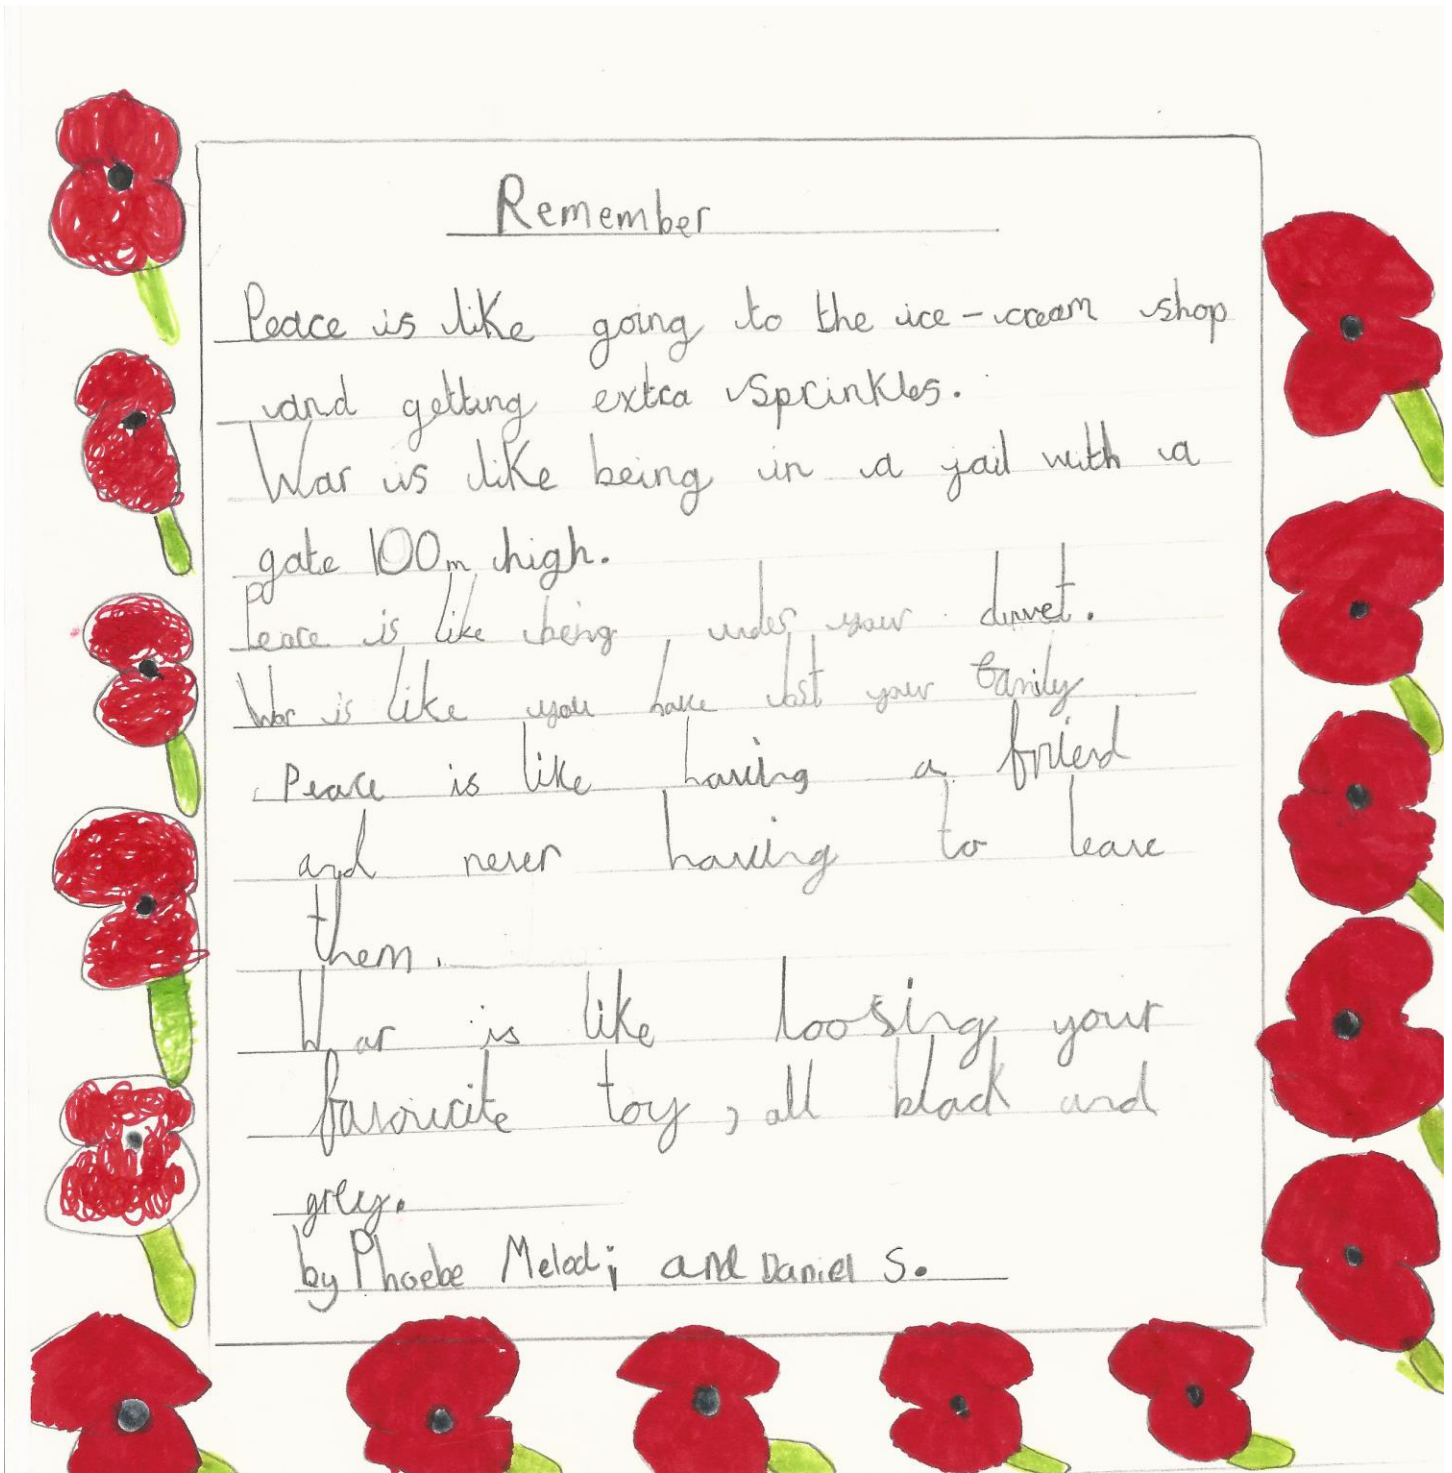 Remember
Peace is like going to the ice-cream shop
and getting extra Sprinkles.
War is like being in a jail with a
gate 100m high.
Peace is like being under your duvet.
War is like you have lost your family
Peace is like having a friend
and never having to leave
them.
War is like loosing your
favourite toy, all black and
grey.
by Phoebe Melodi and Daniel S.